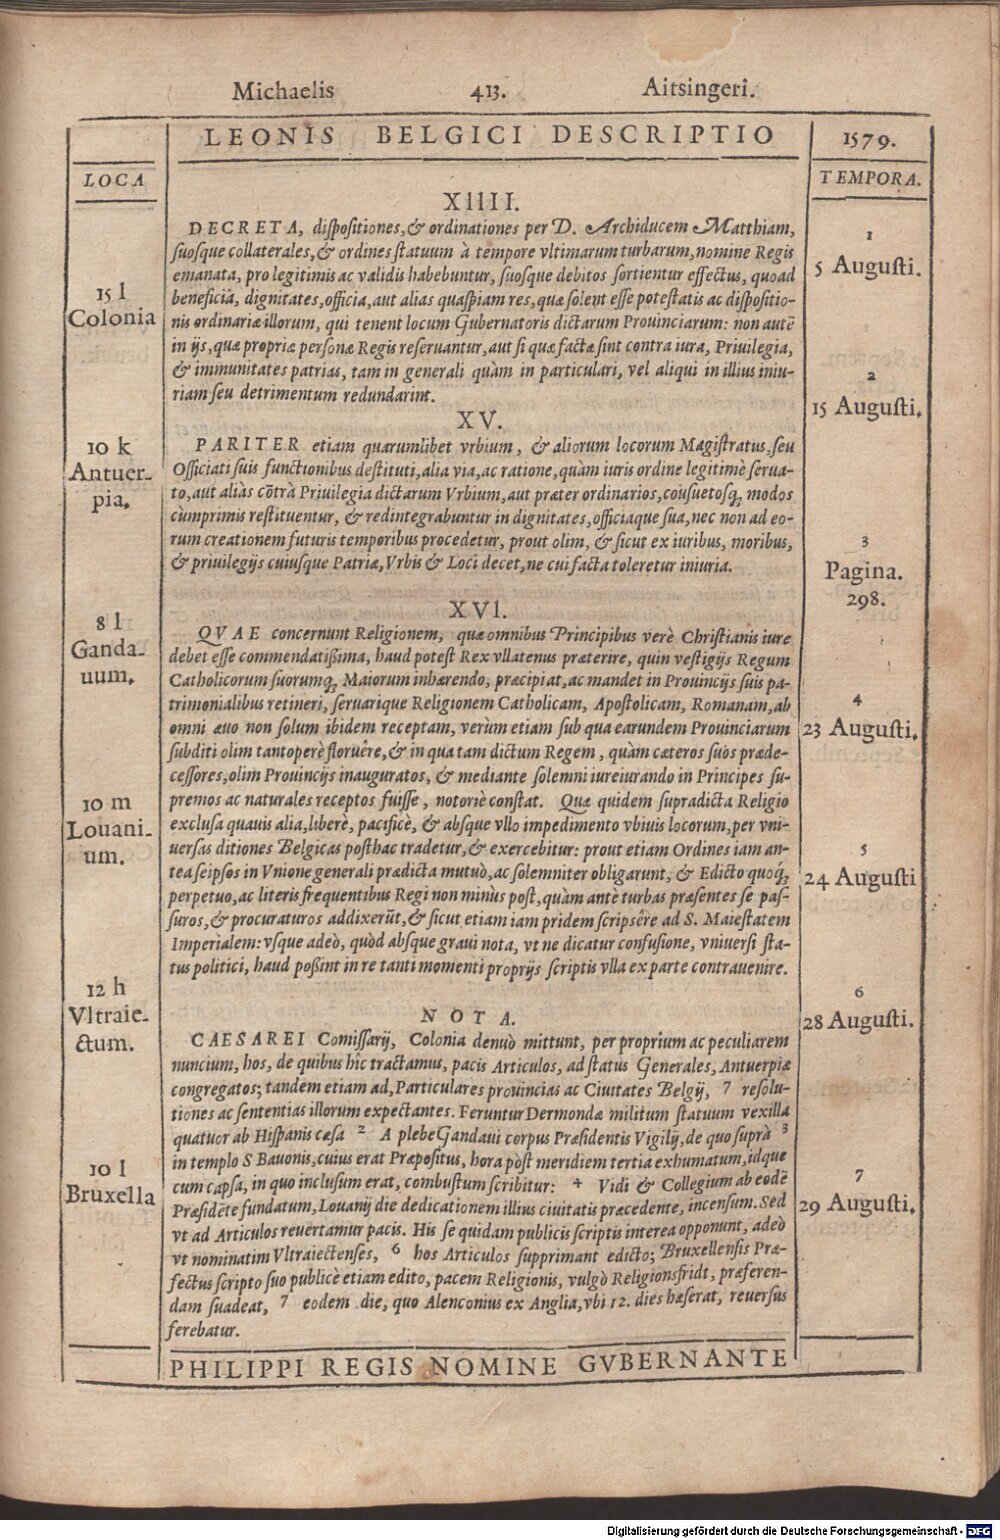 Michaelis 413. Aitsingeri.
LEONIS BELGICI DESCRIPTIO
1579.
LOCA
TEMPORA.
XIIII.
DECRETA, dispositiones, & ordinationes per D. Archiducem Matthiam,
suosque collaterales, & ordines statuum à tempore vltimarum turbarum, nomine Regis
emanata, pro legitimis ac validis habebuntur, suosque debitos sortientur effectus, quoad
beneficia, dignitates, officia, aut alias quaspiam res, quæ solent esse potestatis ac dispositio-
nis ordinariæ illorum, qui tenent locum Gubernatoris dictarum Prouinciarum: non autē
in ijs, quæ propriæ personæ Regis reseruantur, aut si quæ factæ sint contra iura, Priuilegia,
& immunitates patrias, tam in generali quàm in particulari, vel aliqui in illius iniu-
riam seu detrimentum redundarint.
XV.
PARITER etiam quarumlibet vrbium, & aliorum locorum Magistratus, seu
Officiati suis functionibus destituti, alia via, ac ratione, quàm iuris ordine legitimè serua-
to, aut aliàs cōtrà Priuilegia dictarum Vrbium, aut præter ordinarios, consuetosq; modos
cumprimis restituentur, & redintegrabuntur in dignitates, officiaque sua, nec non ad eo-
rum creationem futuris temporibus procedetur, prout olim, & sicut ex iuribus, moribus,
& priuilegijs cuiusque Patriæ, Vrbis & Loci decet, ne cui facta toleretur iniuria.
XVI.
QVAE concernunt Religionem, quæ omnibus Principibus verè Christianis iure
debet esse commendatißima, haud potest Rex vllatenus præterire, quin vestigijs Regum
Catholicorum suorumq; Maiorum inhærendo, præcipiat, ac mandet in Prouincijs suis pa-
trimonialibus retineri, seruarique Religionem Catholicam, Apostolicam, Romanam, ab
omni æuo non solum ibidem receptam, verùm etiam sub qua earundem Prouinciarum
subditi olim tantoperè floruêre, & in qua tam dictum Regem, quàm cæteros suos præde-
cessores, olim Prouincijs inauguratos, & mediante solemni iureiurando in Principes su-
premos ac naturales receptos fuisse, notoriè constat. Quæ quidem supradicta Religio
exclusa quauis alia, liberè, pacificè, & absque vllo impedimento vbiuis locorum, per vni-
uersas ditiones Belgicas posthac tradetur, & exercebitur: prout etiam Ordines iam an-
tea seipsos in Vnione generali prædicta mutuò, ac solemniter obligarunt, & Edicto quoq;
perpetuo, ac literis frequentibus Regi non minùs post, quàm antè turbas præsentes se pas-
suros, & procuraturos addixerūt, & sicut etiam iam pridem scripsêre ad S. Maiestatem
Imperialem: vsque adeò, quòd absque graui nota, vt ne dicatur confusione, vniuersi sta-
tus politici, haud poßint in re tanti momenti proprijs scriptis vlla ex parte contrauenire.
NOTA.
CAESAREI Comissarij, Colonia denuò mittunt, per proprium ac peculiarem
nuncium, hos, de quibus hîc tractamus, pacis Articulos, ad status Generales, Antuerpiæ
congregatos; tandem etiam ad, Particulares prouincias ac Ciuitates Belgij, 7 resolu-
tiones ac sententias illorum expectantes. Feruntur Dermondæ militum statuum vexilla
quatuor ab Hispanis cæsa 2 A plebe Gandaui corpus Præsidentis Vigilij, de quo suprà 3
in templo S Bauonis, cuius erat Præpositus, hora pòst meridiem tertia exhumatum, idque
cum capsa, in quo inclusum erat, combustum scribitur: 4 Vidi & Collegium ab eodē
Præsidēte fundatum, Louanij die dedicationem illius ciuitatis præcedente, incensum. Sed
vt ad Articulos reuertamur pacis. His se quidam publicis scriptis interea opponunt, adeò
vt nominatim Vltraiectenses, 6 hos Articulos supprimant edicto; Bruxellensis Præ-
fectus scripto suo publicè etiam edito, pacem Religionis, vulgò Religionsfridt, præferen-
dam suadeat, 7 eodem die, quo Alenconius ex Anglia, vbi 12. dies hæserat, reuersus
ferebatur.
15 l
Colonia
10 k
Antuer-
pia.
8 l
Ganda-
uum.
10 m
Louani-
um.
12 h
Vltraie-
ctum.
10 l
Bruxella
1
5 Augusti.
2
15 Augusti.
3
Pagina.
298.
4
23 Augusti.
5
24 Augusti
6
28 Augusti.
7
29 Augusti.
PHILIPPI REGIS NOMINE GVBERNANTE
Digitalisierung gefördert durch die Deutsche Forschungsgemeinschaft - DFG